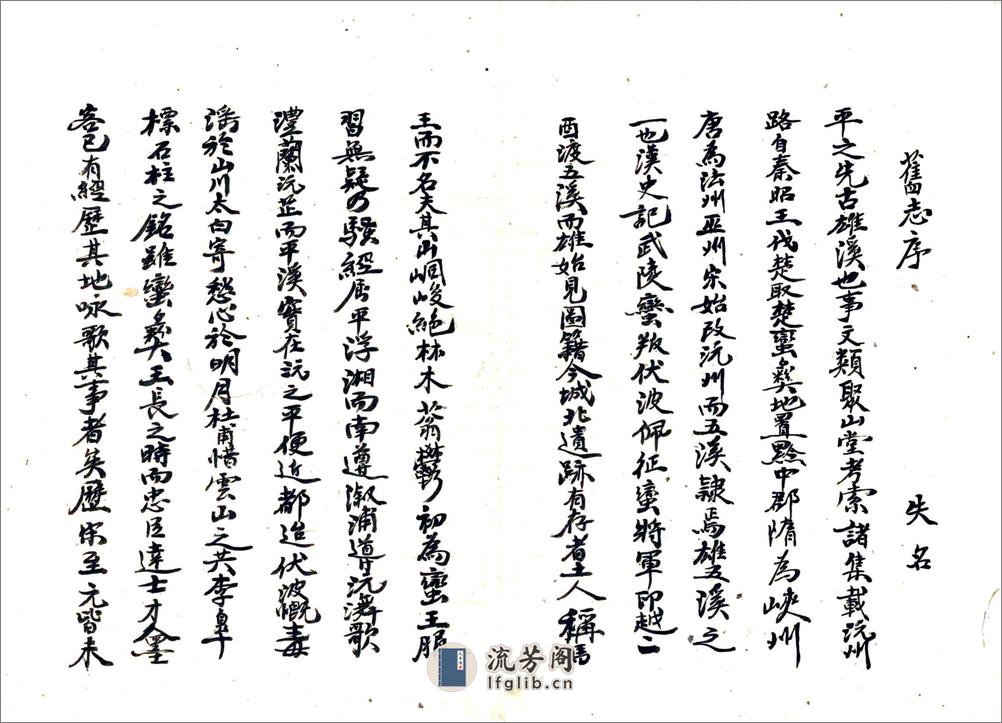 舊志序
失名
平之先古雄溪也事文類聚山堂考索諸集載沅州
路自秦昭王伐楚取楚蠻彜地置黔中郡隋為峽州
唐為沅州巫州宋始改沅州而五溪隸焉雄五溪之
一也漢史記武陵蠻叛伏波佩征蠻將軍印越二
酉渡五溪而雄始見圖籍今城北遺跡有存者土人稱馬
王而不名夫其山峒峻絕林木蓊鬱初為蠻王服
習無疑乃騷經屈平浮湘而南遵溆浦道沅澧歌
澧蘭沅芷而平溪實在沅之平便近都迨伏波慨毒
滛於山川太白寄愁心於明月杜甫惜雲山之共李皐
標石柱之銘雖蠻彜王長之時而忠臣達士才人墨
客已有經歷其地咏歌其事者矣歷宋至元皆未
流芳阁
lfglib.cn